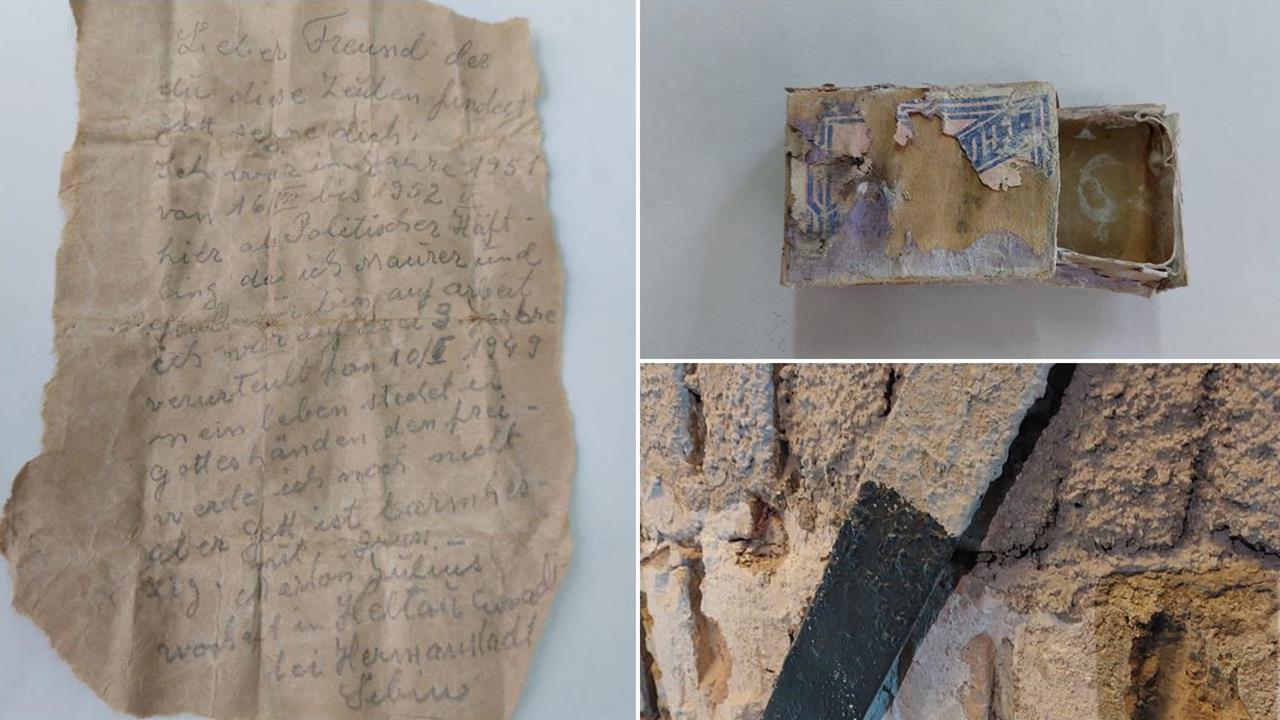 Lieber Freund der
du diese Zeilen findest
Gott segne dich.
Ich war im Jahre 1951
von 16 bis 1952
hier als Politischer Häft-
ling da ich Maurer und
auf arbeit
ich war auf
verurteilt von 10/ 1949
mein leben stecket in
gotteshänden den frei-
werde ich noch nicht
aber Gott ist barmher-
zig. mit
Marton Julius
wohaft in Heltau
bei Hermannstadt
Sebiu